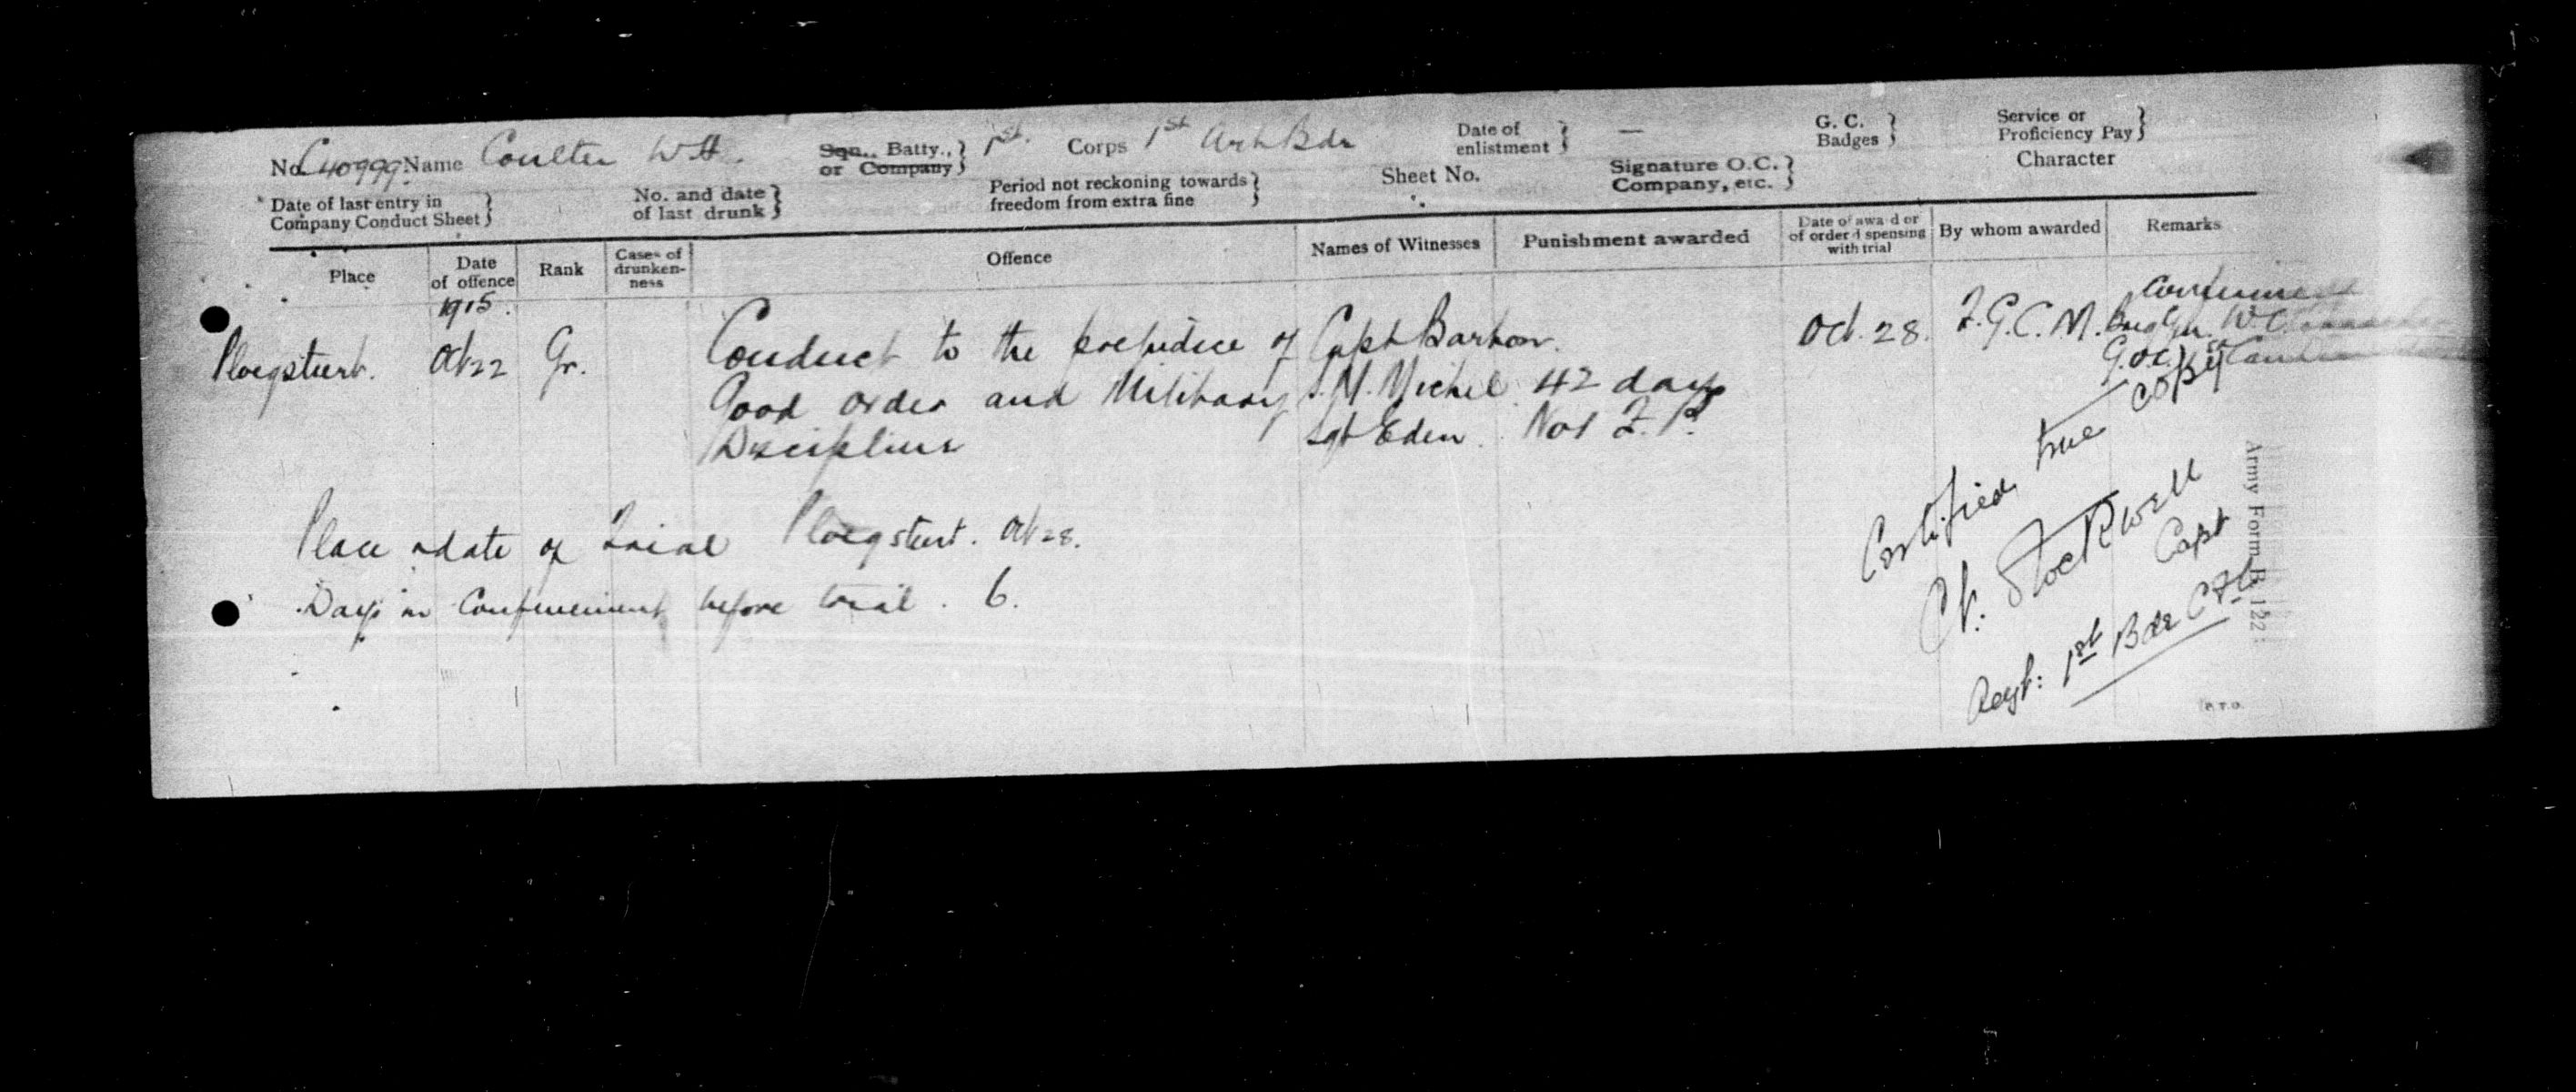 No. 40999. Name Coulter W.H. Sqn., Batty., or Company } 1st. Corps 1st Art Bde Date of enlistment } — G. C. Badges } Service or Proficiency Pay }
Date of last entry in Company Conduct Sheet } No. and date of last drunk } Period not reckoning towards freedom from extra fine } Sheet No. Signature O.C. Company, etc. } Character
Place Date of offence Rank Cases of drunkenness Offence Names of Witnesses Punishment awarded Date of award or of order dispensing with trial By whom awarded Remarks
1915.
Ploegsteert. Oct 22 Gr. Conduct to the prejudice of Capt Barton. Oct. 28. F.G.C.M. Confirmed
Good order and Military S.M. Michel 42 days G.O.C.
Discipline Sgt Eden. No 1 F.P.
Place & date of Trial Ploegsteert. Oct 28.
Days in Confinement before trial. 6.
Certified true copy
Ch. Stockwell
Capt
1st Bde CFA
Army Form B. 122.
P.T.O.